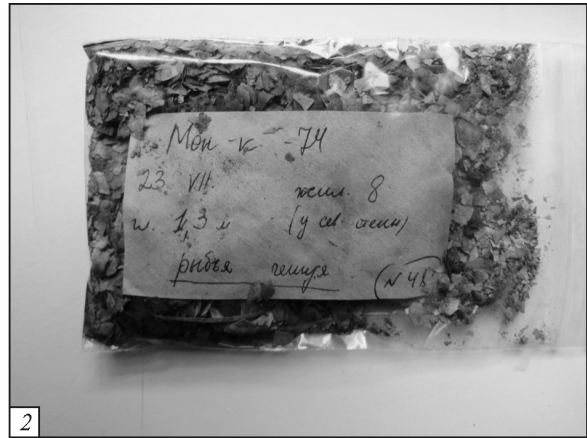 Мон-к -74
23 VII жил. 8
гл. 1,3 м (у св. стен)
рыбья чешуя (N 48)
2